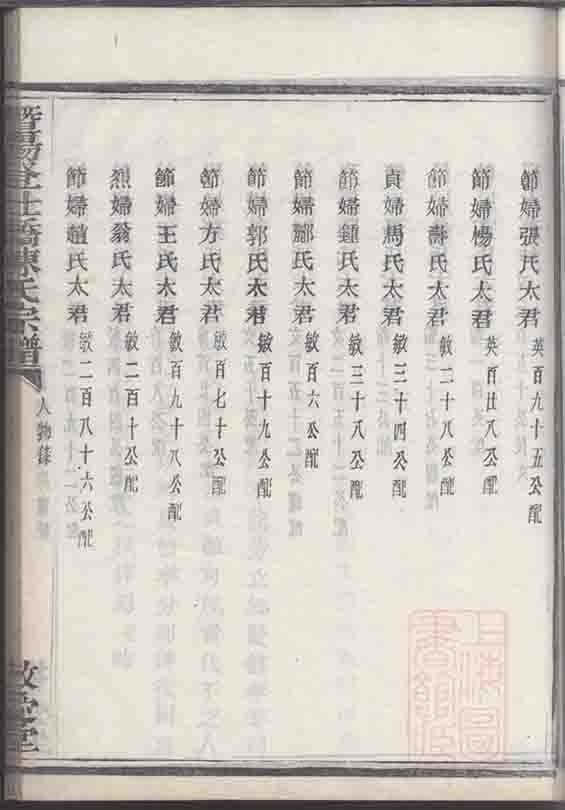 節婦張氏太君 英百九十五公配
節婦楊氏太君 英百廿八公配
節婦壽氏太君 敏二十八公配
貞婦馬氏太君 敏三十四公配
節婦鍾氏太君 敏三十八公配
節婦酈氏太君 敏百六公配
節婦郭氏太君 敏百十九公配
節婦方氏太君 敏百七十公配
節婦王氏太君 敏百九十八公配
烈婦翁氏太君 敏二百十公配
節婦趙氏太君 敏二百八十六公配
暨陽登仕橋陳氏宗譜 人物錄 敦堂
上海圖書館藏